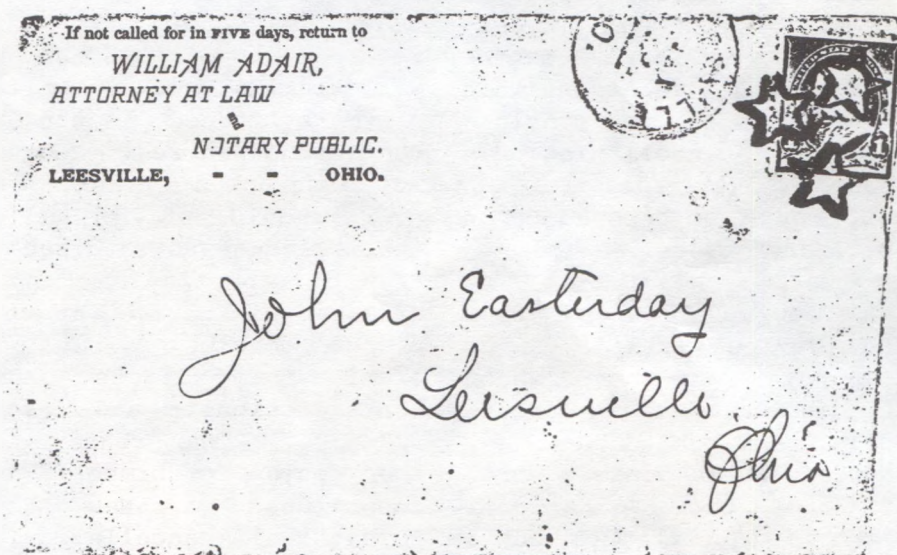 If not called for in FIVE days, return to
WILLIAM ADAIR,
ATTORNEY AT LAW
NOTARY PUBLIC.
LEESVILLE, - - OHIO.
John Easterday
Leesville
Ohio